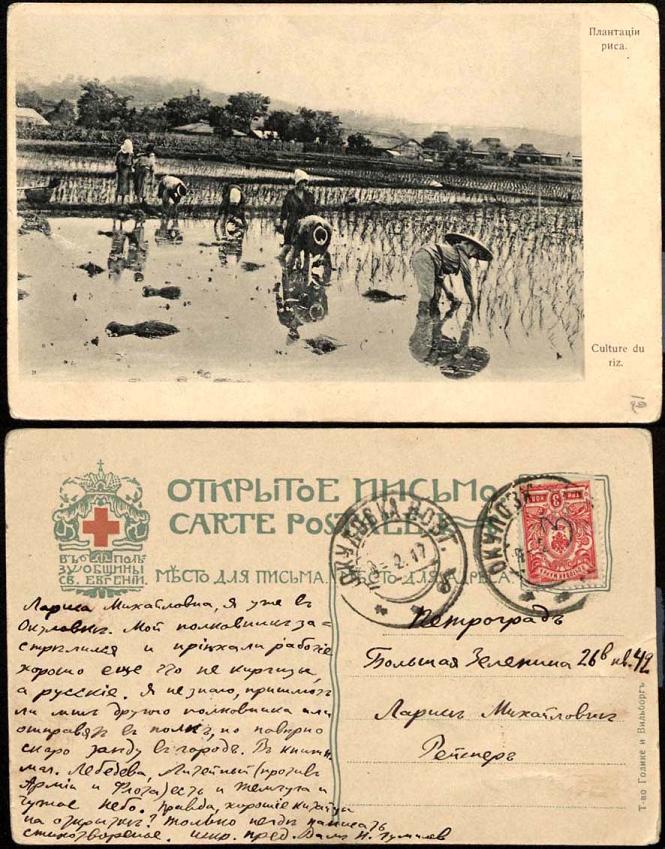 Плантаціи
риса.
Culture du
riz.
19
ОТКРЫТОЕ ПИСЬМО
CARTE POSTALE
ВЪ ПОЛЬ
ЗУ ОБЩИНЫ
СВ. ЕВГЕНІИ.
МѢСТО ДЛЯ ПИСЬМА. МѢСТО ДЛЯ АДРЕСА.
ОКУЛОВКА
2.17
ОКУЛОВКА
3 КОП
ТРИ КОП
Лариса Михайловна, я уже въ
Окуловкѣ. Мой полковникъ за=
стрѣлился и пріѣхали рабочіе
хорошо еще что не киргизы,
а русскіе. Я не знаю, пришлютъ
ли мнѣ другого полковника или
отправятъ въ полкъ, но навѣрно
скоро заѣду въ городъ. Въ книжн.
маг. Лебедева, Литейный (противъ
Арміи и Флота) есть и Жемчуга и
Чужое Небо. Правда, хорошіе китайцы
на открыткѣ? Только негдѣ написать
стихотвореніе. Вамъ Н. Гумилевъ
Петроградъ
Большая Зеленина 26в кв. 42
Ларисѣ Михайловнѣ
Рейснеръ
Т-во Голике и Вильборгъ